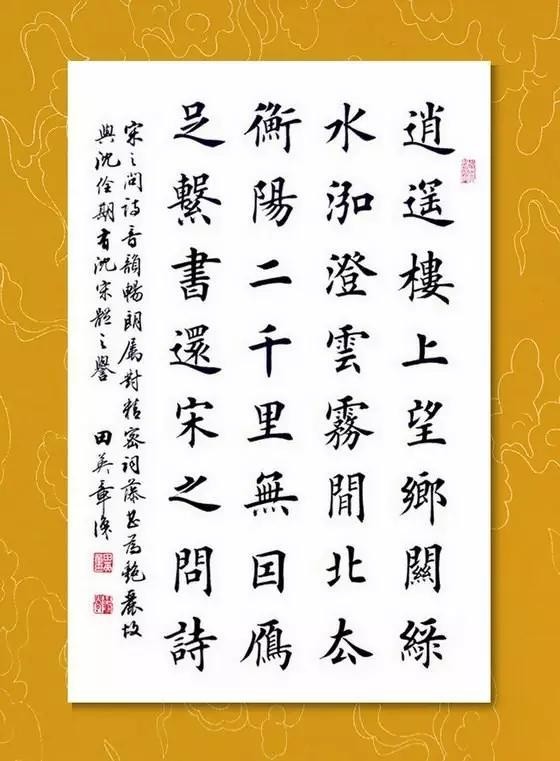 逍遥樓上望鄉關緑
水泓澄雲霧間北厺
衡陽二千里無囙鴈
足繫書還宋之問詩
宋之問詩音韻暢朗屬對精密詞藻甚為艷麗故
與沈佺期有沈宋體之譽 田英章